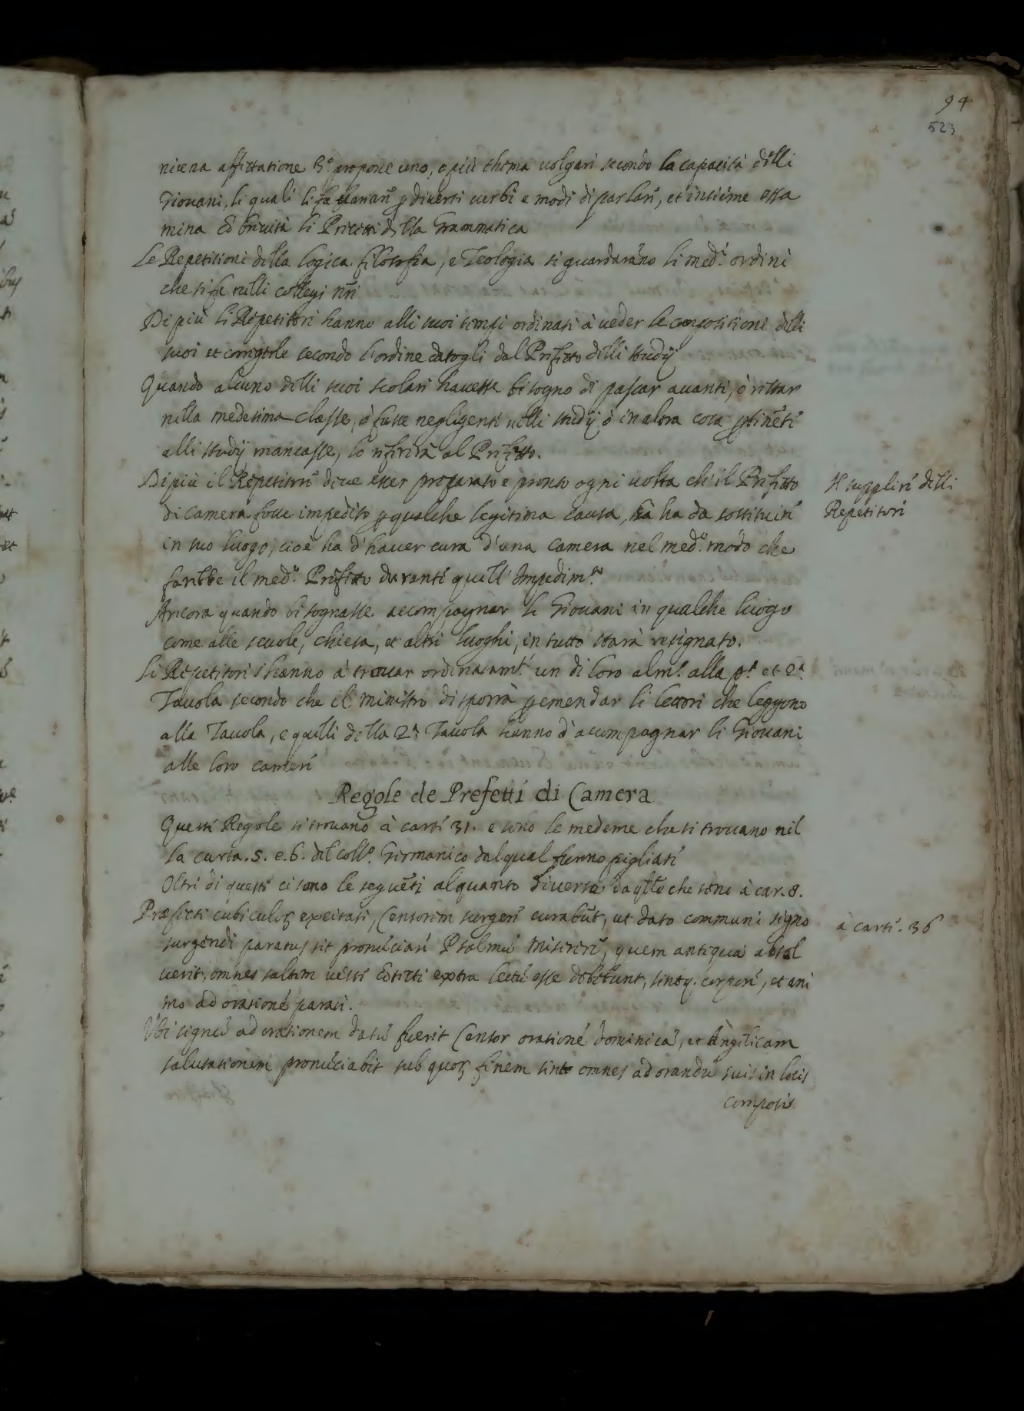 94
523
niuna affettatione 3.º propone uno, o più thema uolgari secondo la capacità delli
Giouani, li quali li fa uariar p diuersi uerbi e modi di parlar, et insieme essa
mina cõ breuità li Precetti della Grammatica
Le Repetitioni della logica, filosofia, e Teologia si guardarãno li med.i ordini
che si fa nelli collegi nri
Di più li Repetitori hanno alli suoi tempi ordinati à ueder le compositioni delli
suoi et corregerle secondo l'ordine datogli dal Prefetto delli studij
Quando alcuno delli suoi scolari hauesse bisogno di passar auanti, ò restar
nella medesima classe, ò fusse negligente nelli studij ò in altra cosa ptinẽte
alli studij mancasse, lo riferirà al Prefetto.
Di più il Repetitore deue esser preparato e pronto ogni uolta ch'il Prefetto
di camera fosse impedito p qualche legitima causa, ha da sostituire
in suo luogo, cioè ha d'hauer cura d'una camera nel med.º modo che
farebbe il med.º Prefetto durante quell'Impedim.to
Il supplire delli
Repetitori
Ancora quando bisognasse accompagnar li Giouani in qualche luogo
come alle scuole, chiesa, et altri luoghi, in tutto starà resignato.
Li Repetitori s'hanno à trouar ordinariamt.e un di loro alm.º alla p.a et 2.a
Tauola secondo che il ministro disporrà p emendar li lettori che leggono
alla Tauola, e quelli della 2.a Tauola hanno d'accompagnar li Giouani
alle loro camere
Regole de Prefetti di Camera
Queste Regole si trouano à carte 31. e sono le medeme che si trouano nel
la carta .5. e .6. del coll.º Germanico dal qual furno pigliate
Oltre di queste ci sono le seguẽti alquanto diuerse da q̃lle che sono à car. 8.
Præfecti cubiculoꝝ excitati, Censorem surgere curabũt, ut dato communi signo
surgendi paratus sit pronũciare Psalmũ Miserere, quem antiquã absol
uerit, omnes saltem ueste extra lectũ esse debebunt, sintq. corpore, et ani
mo ad orationẽ parati.
à carte. 36
Vbi signũ ad orationem datũ fuerit Censor orationẽ dominicã, et Angelicam
salutationem pronũciabit sub quoꝝ finem sint omnes ad orandũ suis in locis
compositi